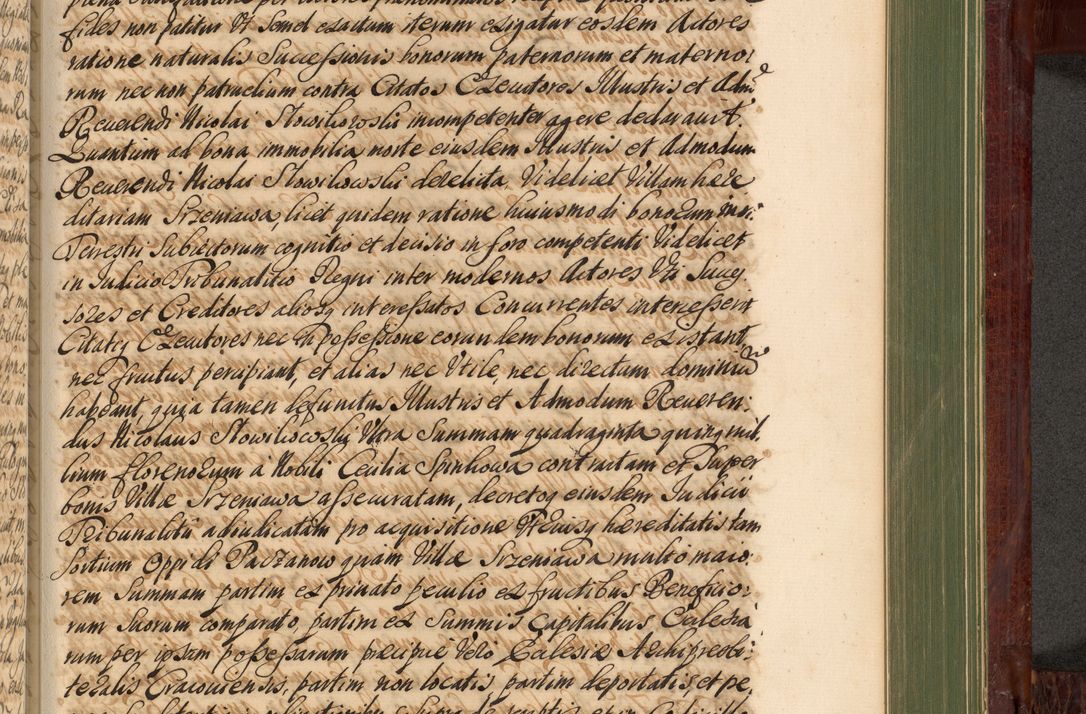 fides non patitur Ut semel exactum iterum exigatur eosdem Actores
ratione naturalis Successionis bonorum paternorum et materno:
rum nec non patruelium contra Citatos Executores Illustris et Adm̃d
Reverendi Nicolai Słowikowski incompetenter agere declaravit.
Quantum ad bona immobilia morte eiusdem Illustris et Admodum
Reverendi Nicolai Słowikowski derelicta, Videlicet Villam hære
ditariam Srzeniawa, licet quidem ratione huiusmodi bonorum
Terrestri Subiectorum cognitio et decisio in foro competenti Videlicet
in Judicio Tribunalitio Regni inter modernos Actores Uti Succes
sores et Creditores aliosq interessatos Concurrentes interesserit
Citatiq Executores nec in possessione eorundem bonorum existant,
nec fructus percipiant, et alias nec Utile, nec directum dominiũ
habeant, quia tamen defunctus Illustris et Admodum Reveren:
dus Nicolaus Słowikowski Ultra Summam quadraginta quinq mil
lium florenorum à Nobili Cecilia Spinkowa contractam et Super
bonis Villæ Srzeniawa assecuratam, decretoq eiusdem Judicii
Tribunalitii adiudicatam pro acquisitione Avitisq hæreditatis tam
Sortium Oppidi Paczanow quam Villæ Srzeniawa multo maio:
rem Summam partim ex privato peculio ex fructibus Beneficio:
rum Suorum comparato, partim ex Summis Capitalibus Ecclesia
rum per ipsum possessarum præcipue Vero Ecclesiæ Archipresbi:
teralis Cracoviensis, partim non locatis, partim deportatis, et pe,